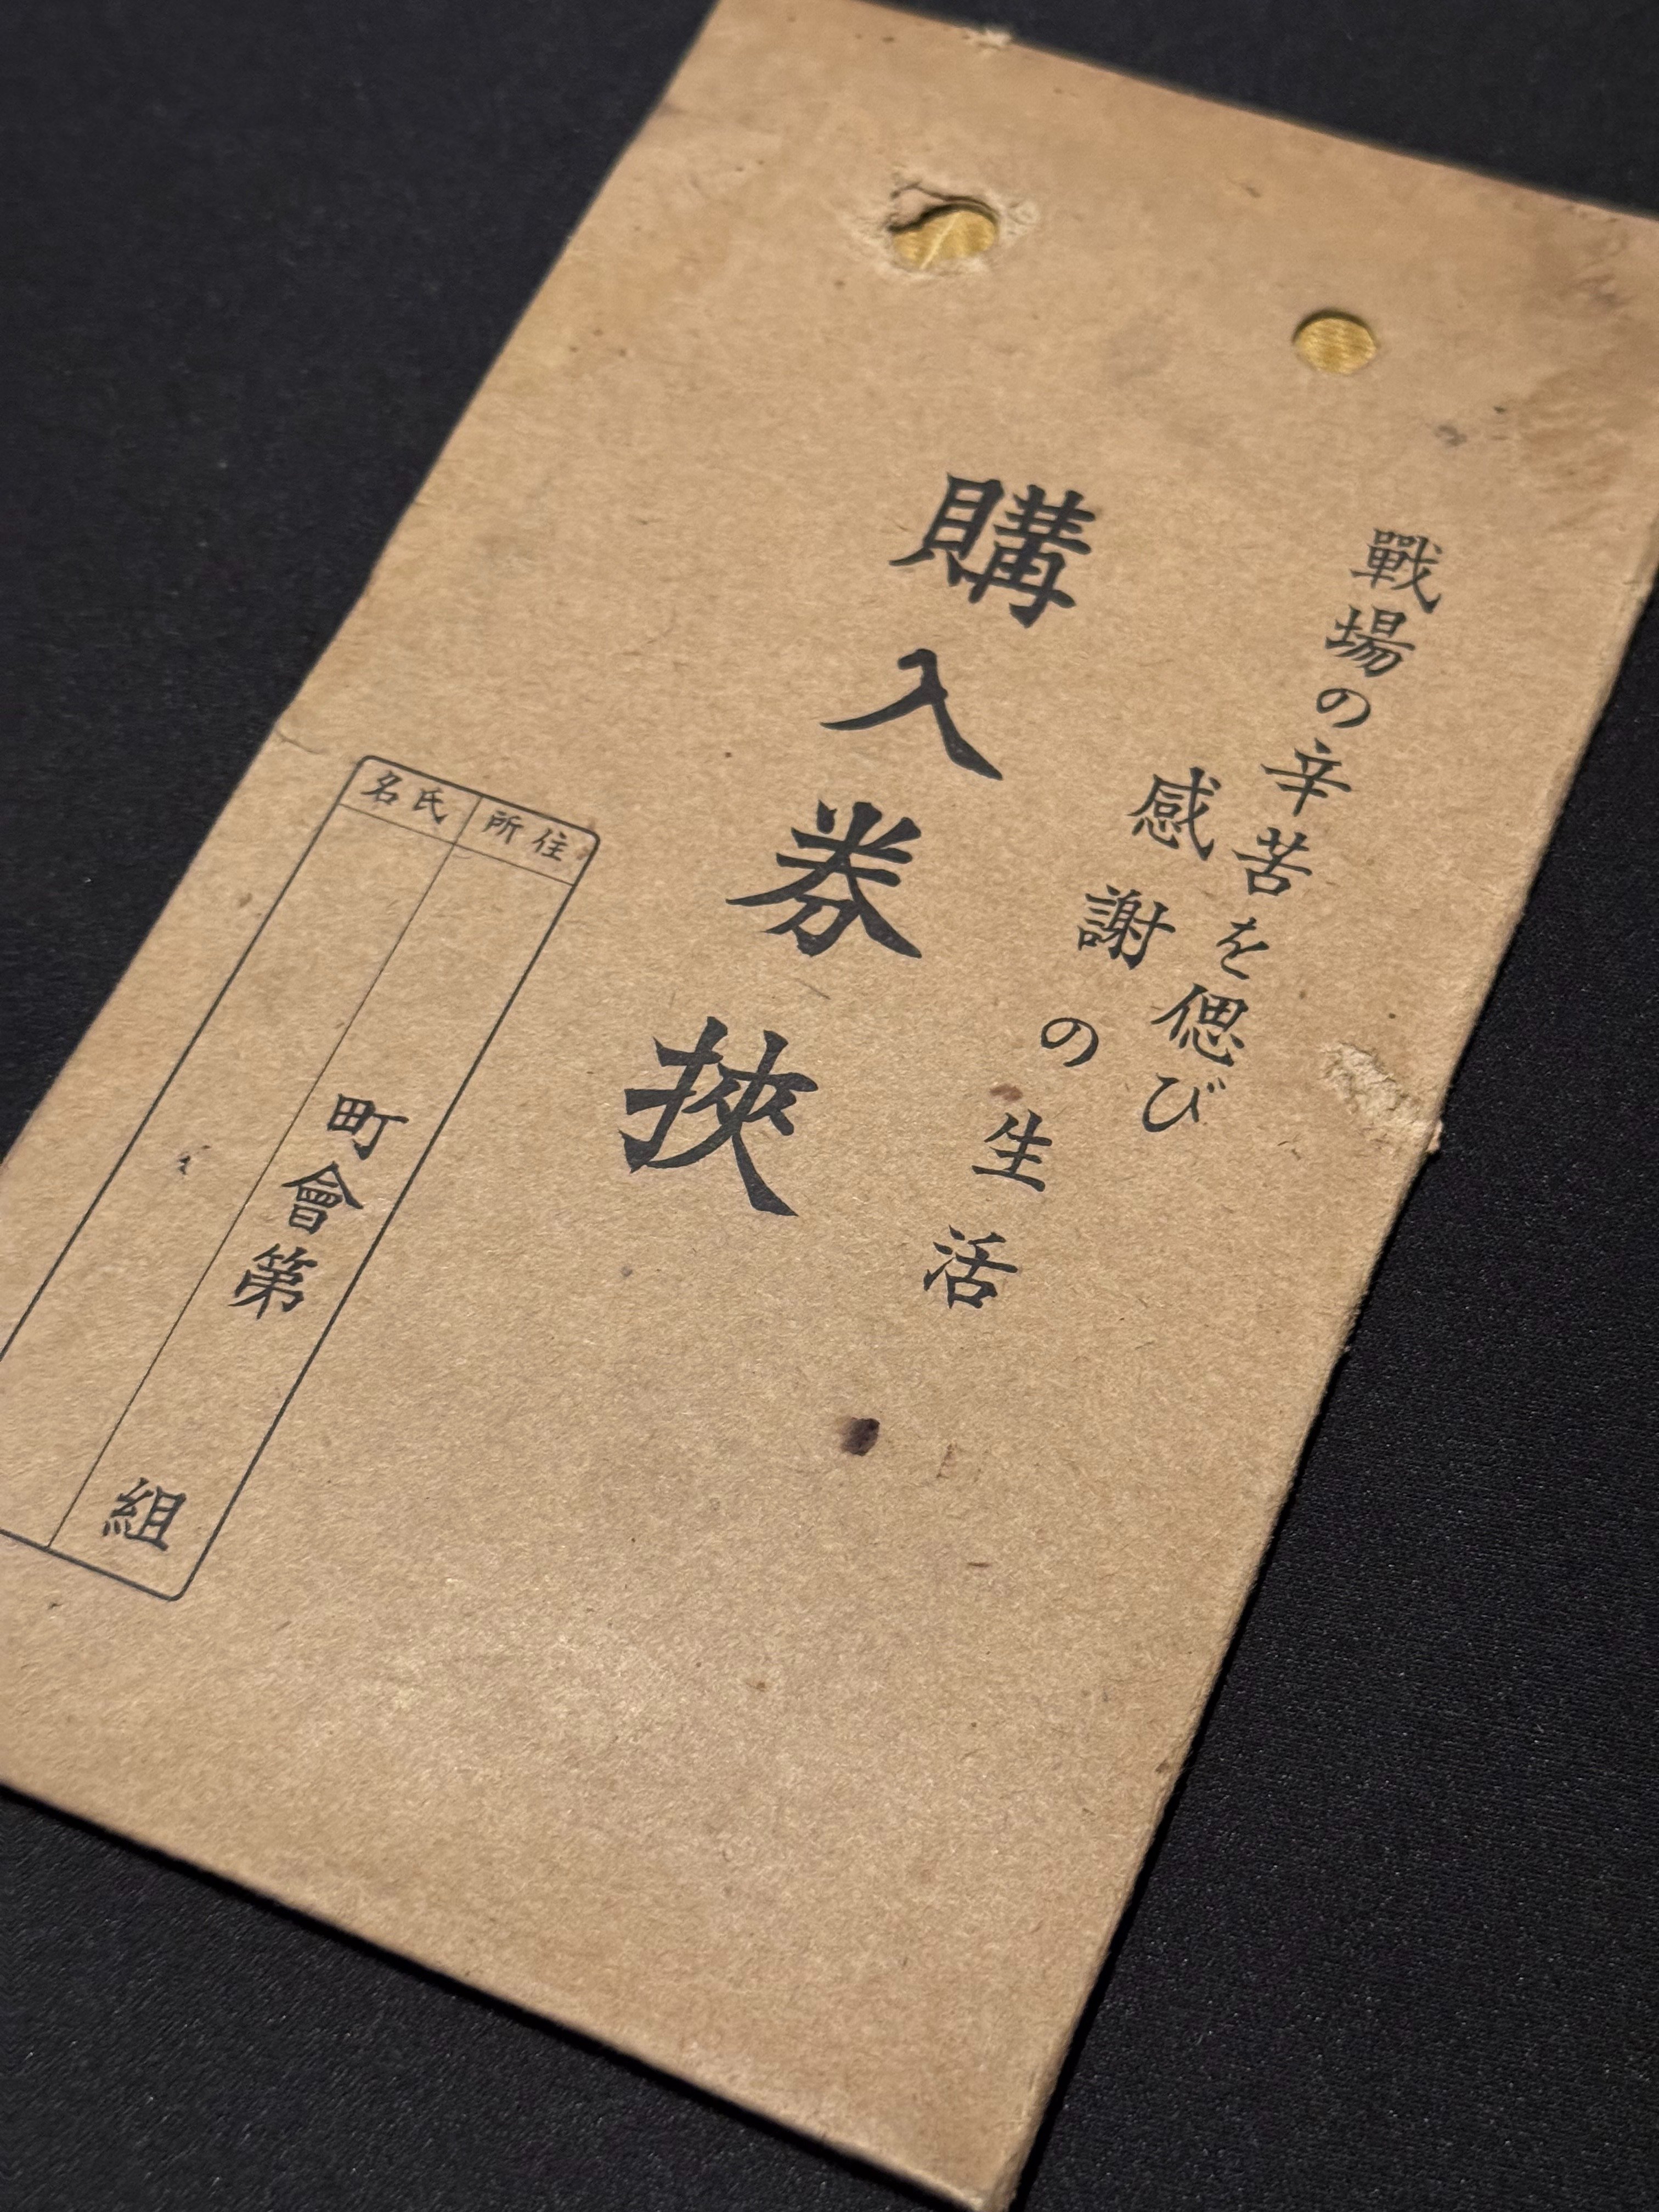 戰場の辛苦を偲び
感謝の生活
購入券挾
住所
町會第 組
氏名